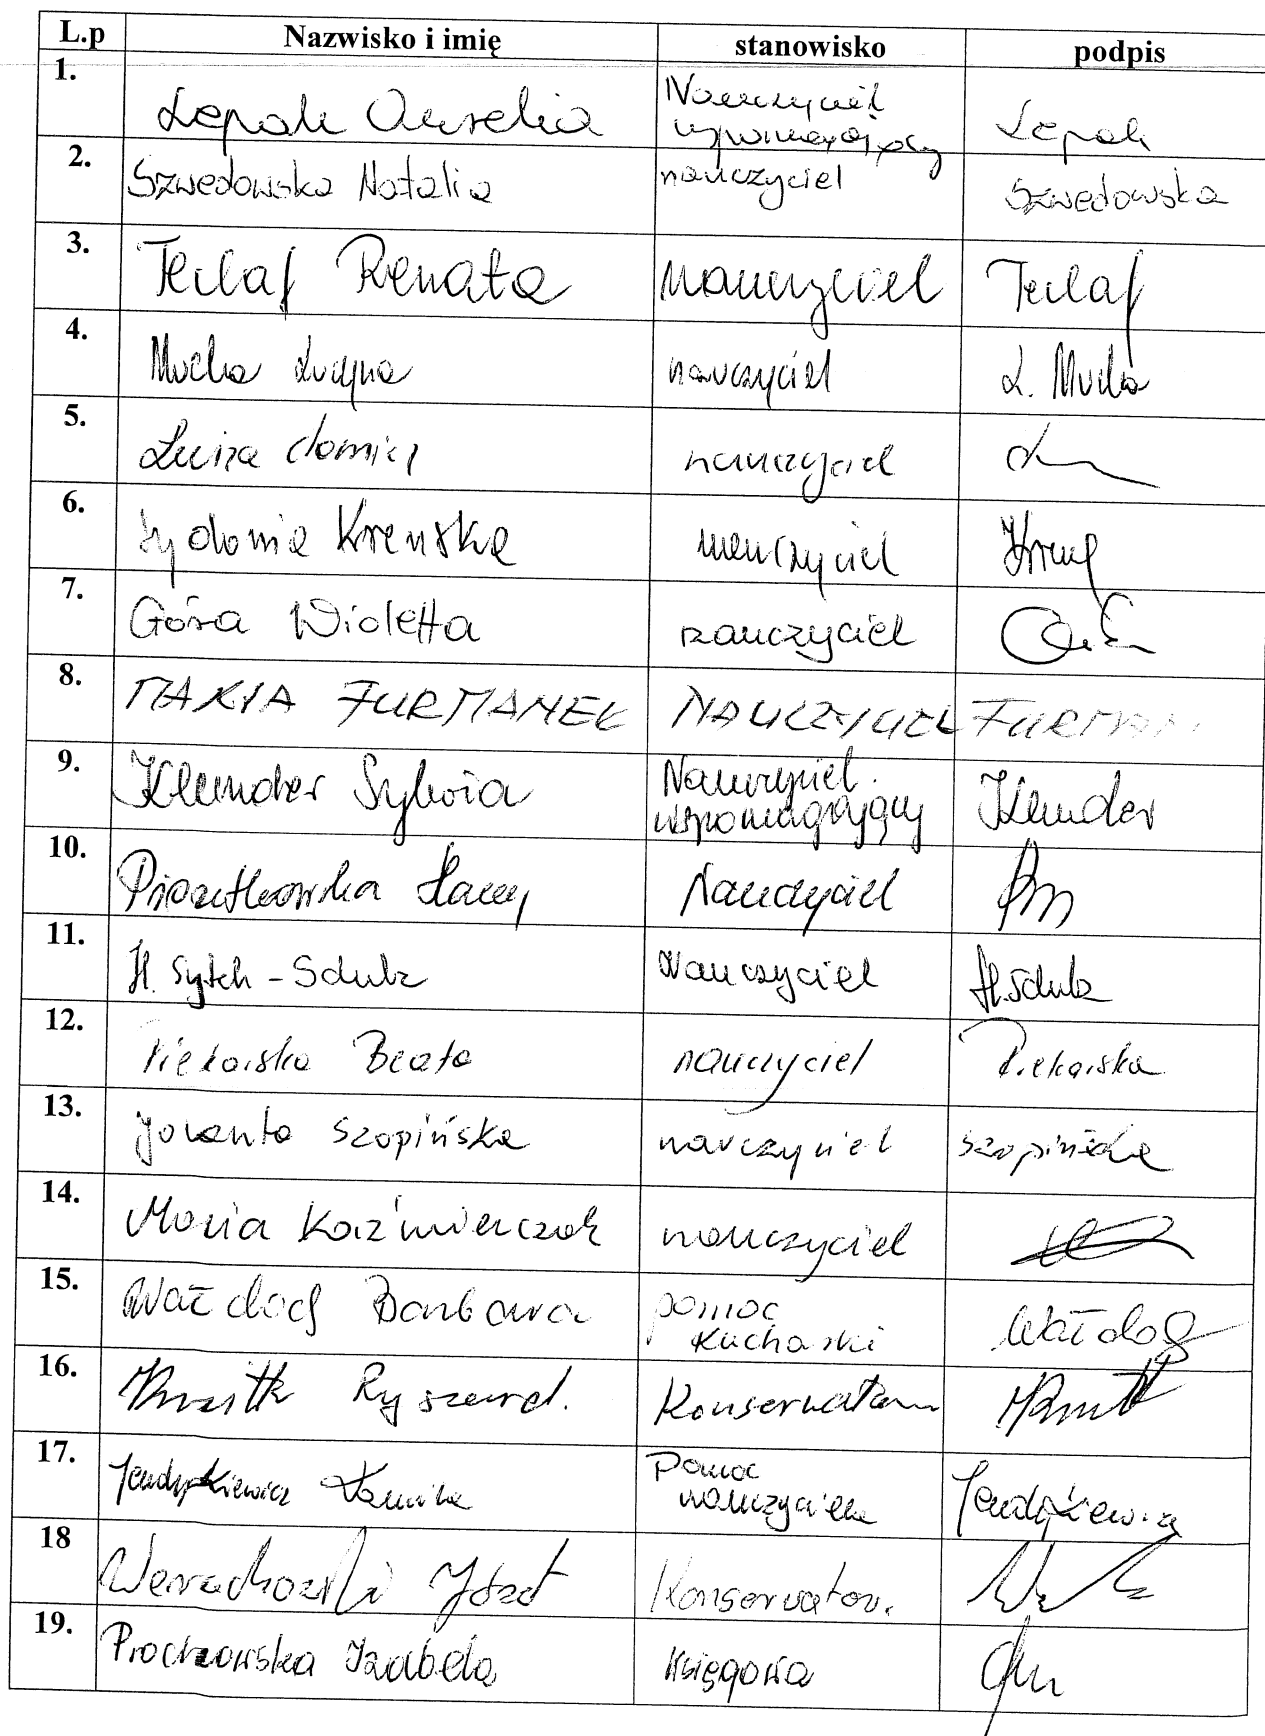 L.p Nazwisko i imię stanowisko podpis
1. Lepak Aurelia Nauczyciel wspomagający Lepak
2. Szwedowska Natalia nauczyciel Szwedowska
3. Teclaf Renata nauczyciel Teclaf
4. Mucha Lucyna nauczyciel L. Mucha
5. Luiza nauczyciel
6. Sydonia Krenska nauczyciel
7. Góra Wioletta nauczyciel
8. MARIA FURMANEK NAUCZYCIEL FURMAN
9. Klunder Sylwia Nauczyciel wspomagający Klunder
10. Nauczyciel
11. H. Nauczyciel
12. Piekarska Beata nauczyciel Piekarska
13. Jolanta Szopińska nauczyciel Szopińska
14. Maria Kaźmierczak nauczyciel
15. Wałdoch Barbara pomoc kucharki
16. Ryszard. Konserwator
17. Pomoc nauczyciela
18 Józef Konserwator.
19. Izabela księgowa